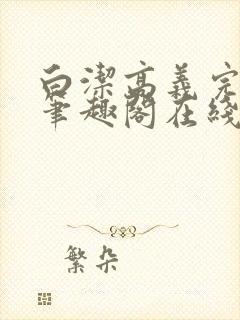 白潔高義完
筆趣閣在綫
繁朵